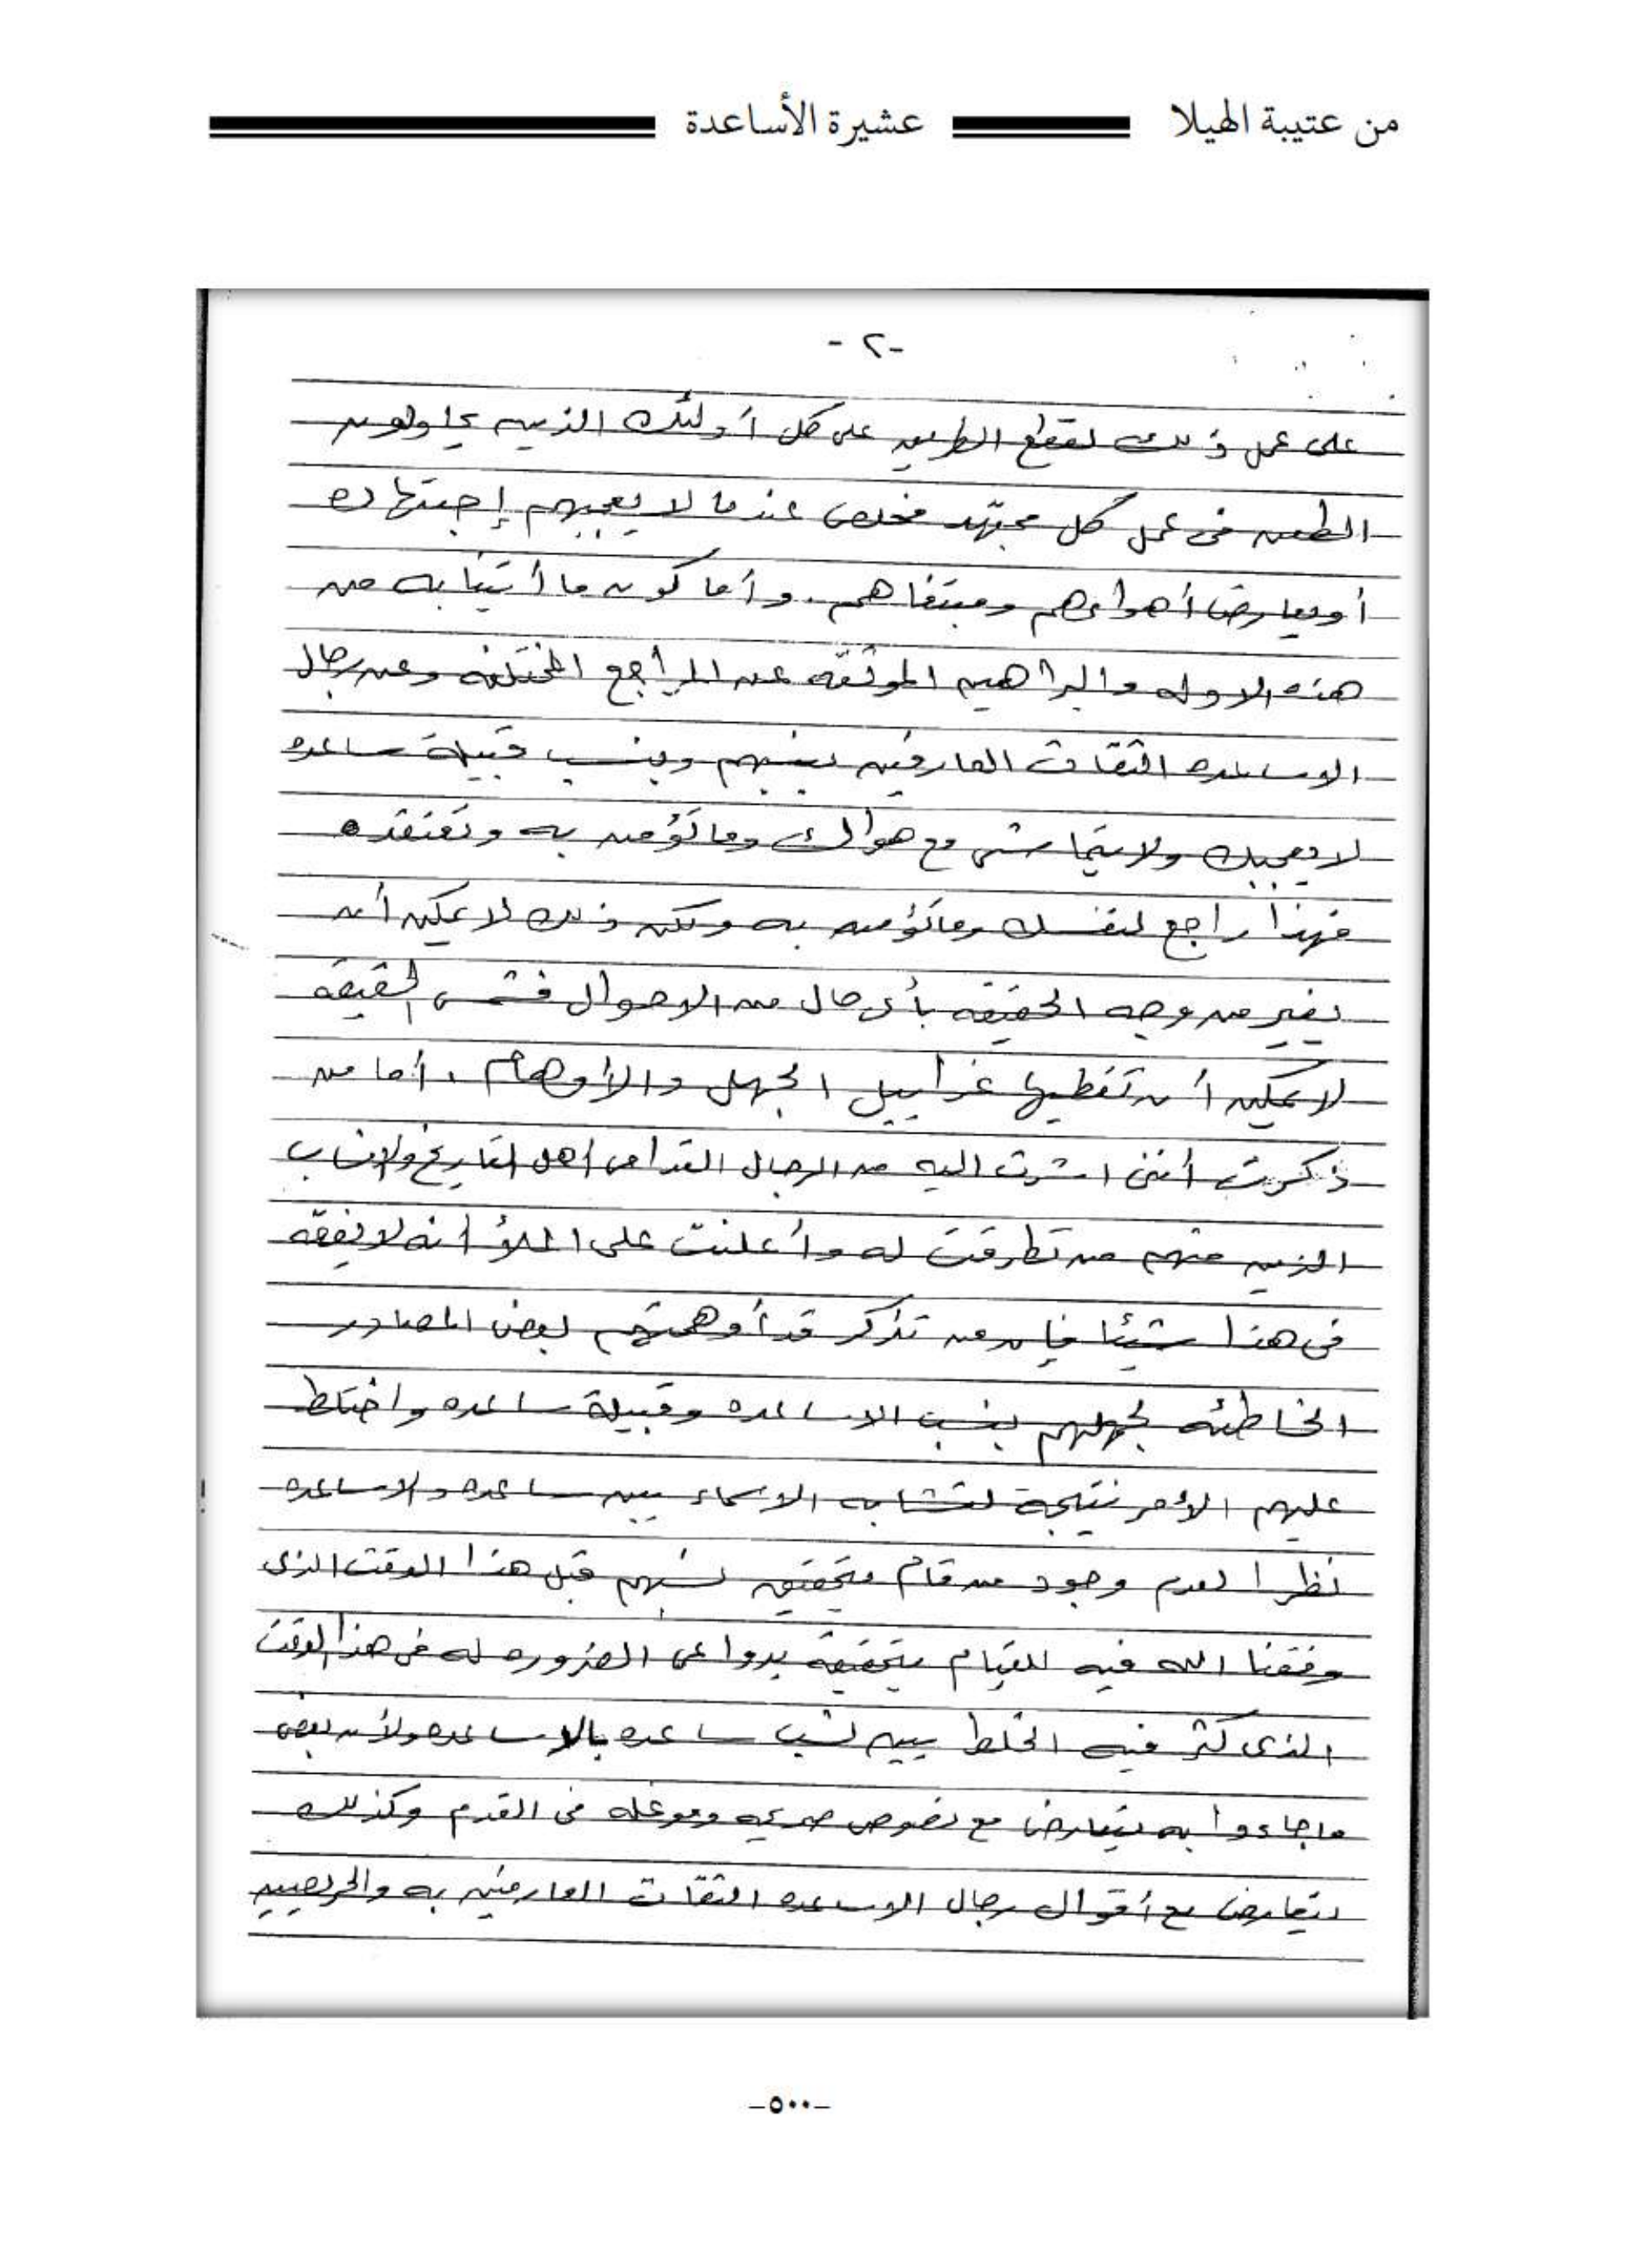 من عتيبة الهيلا
عشيرة الأساعدة
-٢-
على عمل ذلك لقطع الطريق على كل أولئك الذين يحاولون
الطعن في عمل كل مجتهد مخلص عندما لا يعجبهم إجتهاده
أو يعارض أهواءهم ومبتغاهم. وأما كون ما أتينا به من
هذه الادله والبراهين الموثقه عن المراجع المختلفه وعن رجال
الاساعده الثقات العارفين بنسبهم وبنسب قبيلة ساعده
لا يعجبك ولا يتماشى مع هواك وما تؤمن به وتعتقده
فهذا راجع لنفسك وما تؤمن به ولكن ذلك لا يمكن أن
يغير من وجه الحقيقه بأي حال من الاحوال فشمس الحقيقه
لا يمكن أن تغطيها غرابيل الجهل والأوهام . أما من
ذكرت أنني اشرت اليه من الرجال القدامى أهل التاريخ والانساب
الذين منهم من تطرقت له وأعلنت على الملأ انه لا يفقه
في هذا شيئا فإن من تذكر قد أوهمتهم بعض المصادر
الخاطئه لجهلهم بنسب الاساعده وقبيلة ساعده واختلط
عليهم الأمر نتيجة لتشابه الاسماء بين ساعده والاساعده
نظرا لعدم وجود من قام بتحقيق نسبهم قبل هذا الوقت الذي
وفقنا الله فيه للقيام بتحقيقه بدواعى الضروره له في هذا الوقت
الذي كثر فيه الخلط بين نسب ساعده بالاساعده ولأن بعض
ما جاءوا به يتعارض مع نصوص صريحه وموغله في القدم وكذلك
يتعارض مع أقوال رجال الاساعده الثقات العارفين به والحريصين
-٥٠٠-